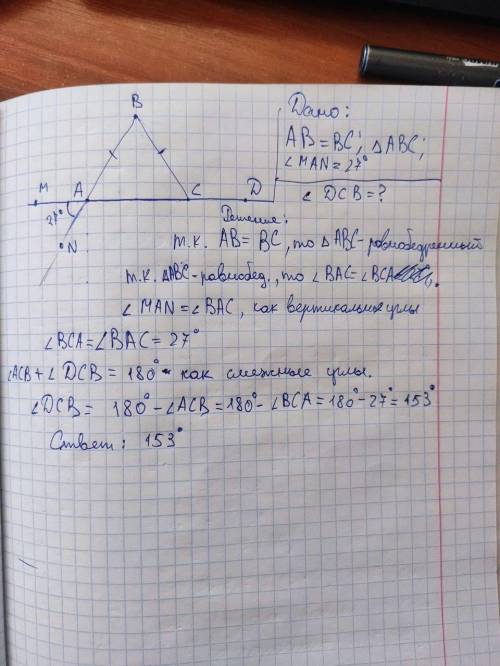 B
M A C D
27°
N
Дано:
AB = BC; △ABC;
∠MAN = 27°
∠ DCB = ?
Решение:
т.к. AB = BC, то △ABC - равнобедренный
т.к. △ABC - равнобед., то ∠BAC = ∠BCA.
∠ MAN = ∠BAC, как вертикальные углы
∠BCA = ∠BAC = 27°
∠ACB + ∠ DCB = 180° - как смежные углы.
∠DCB = 180° - ∠ACB = 180° - ∠BCA = 180° - 27° = 153°
Ответ: 153°